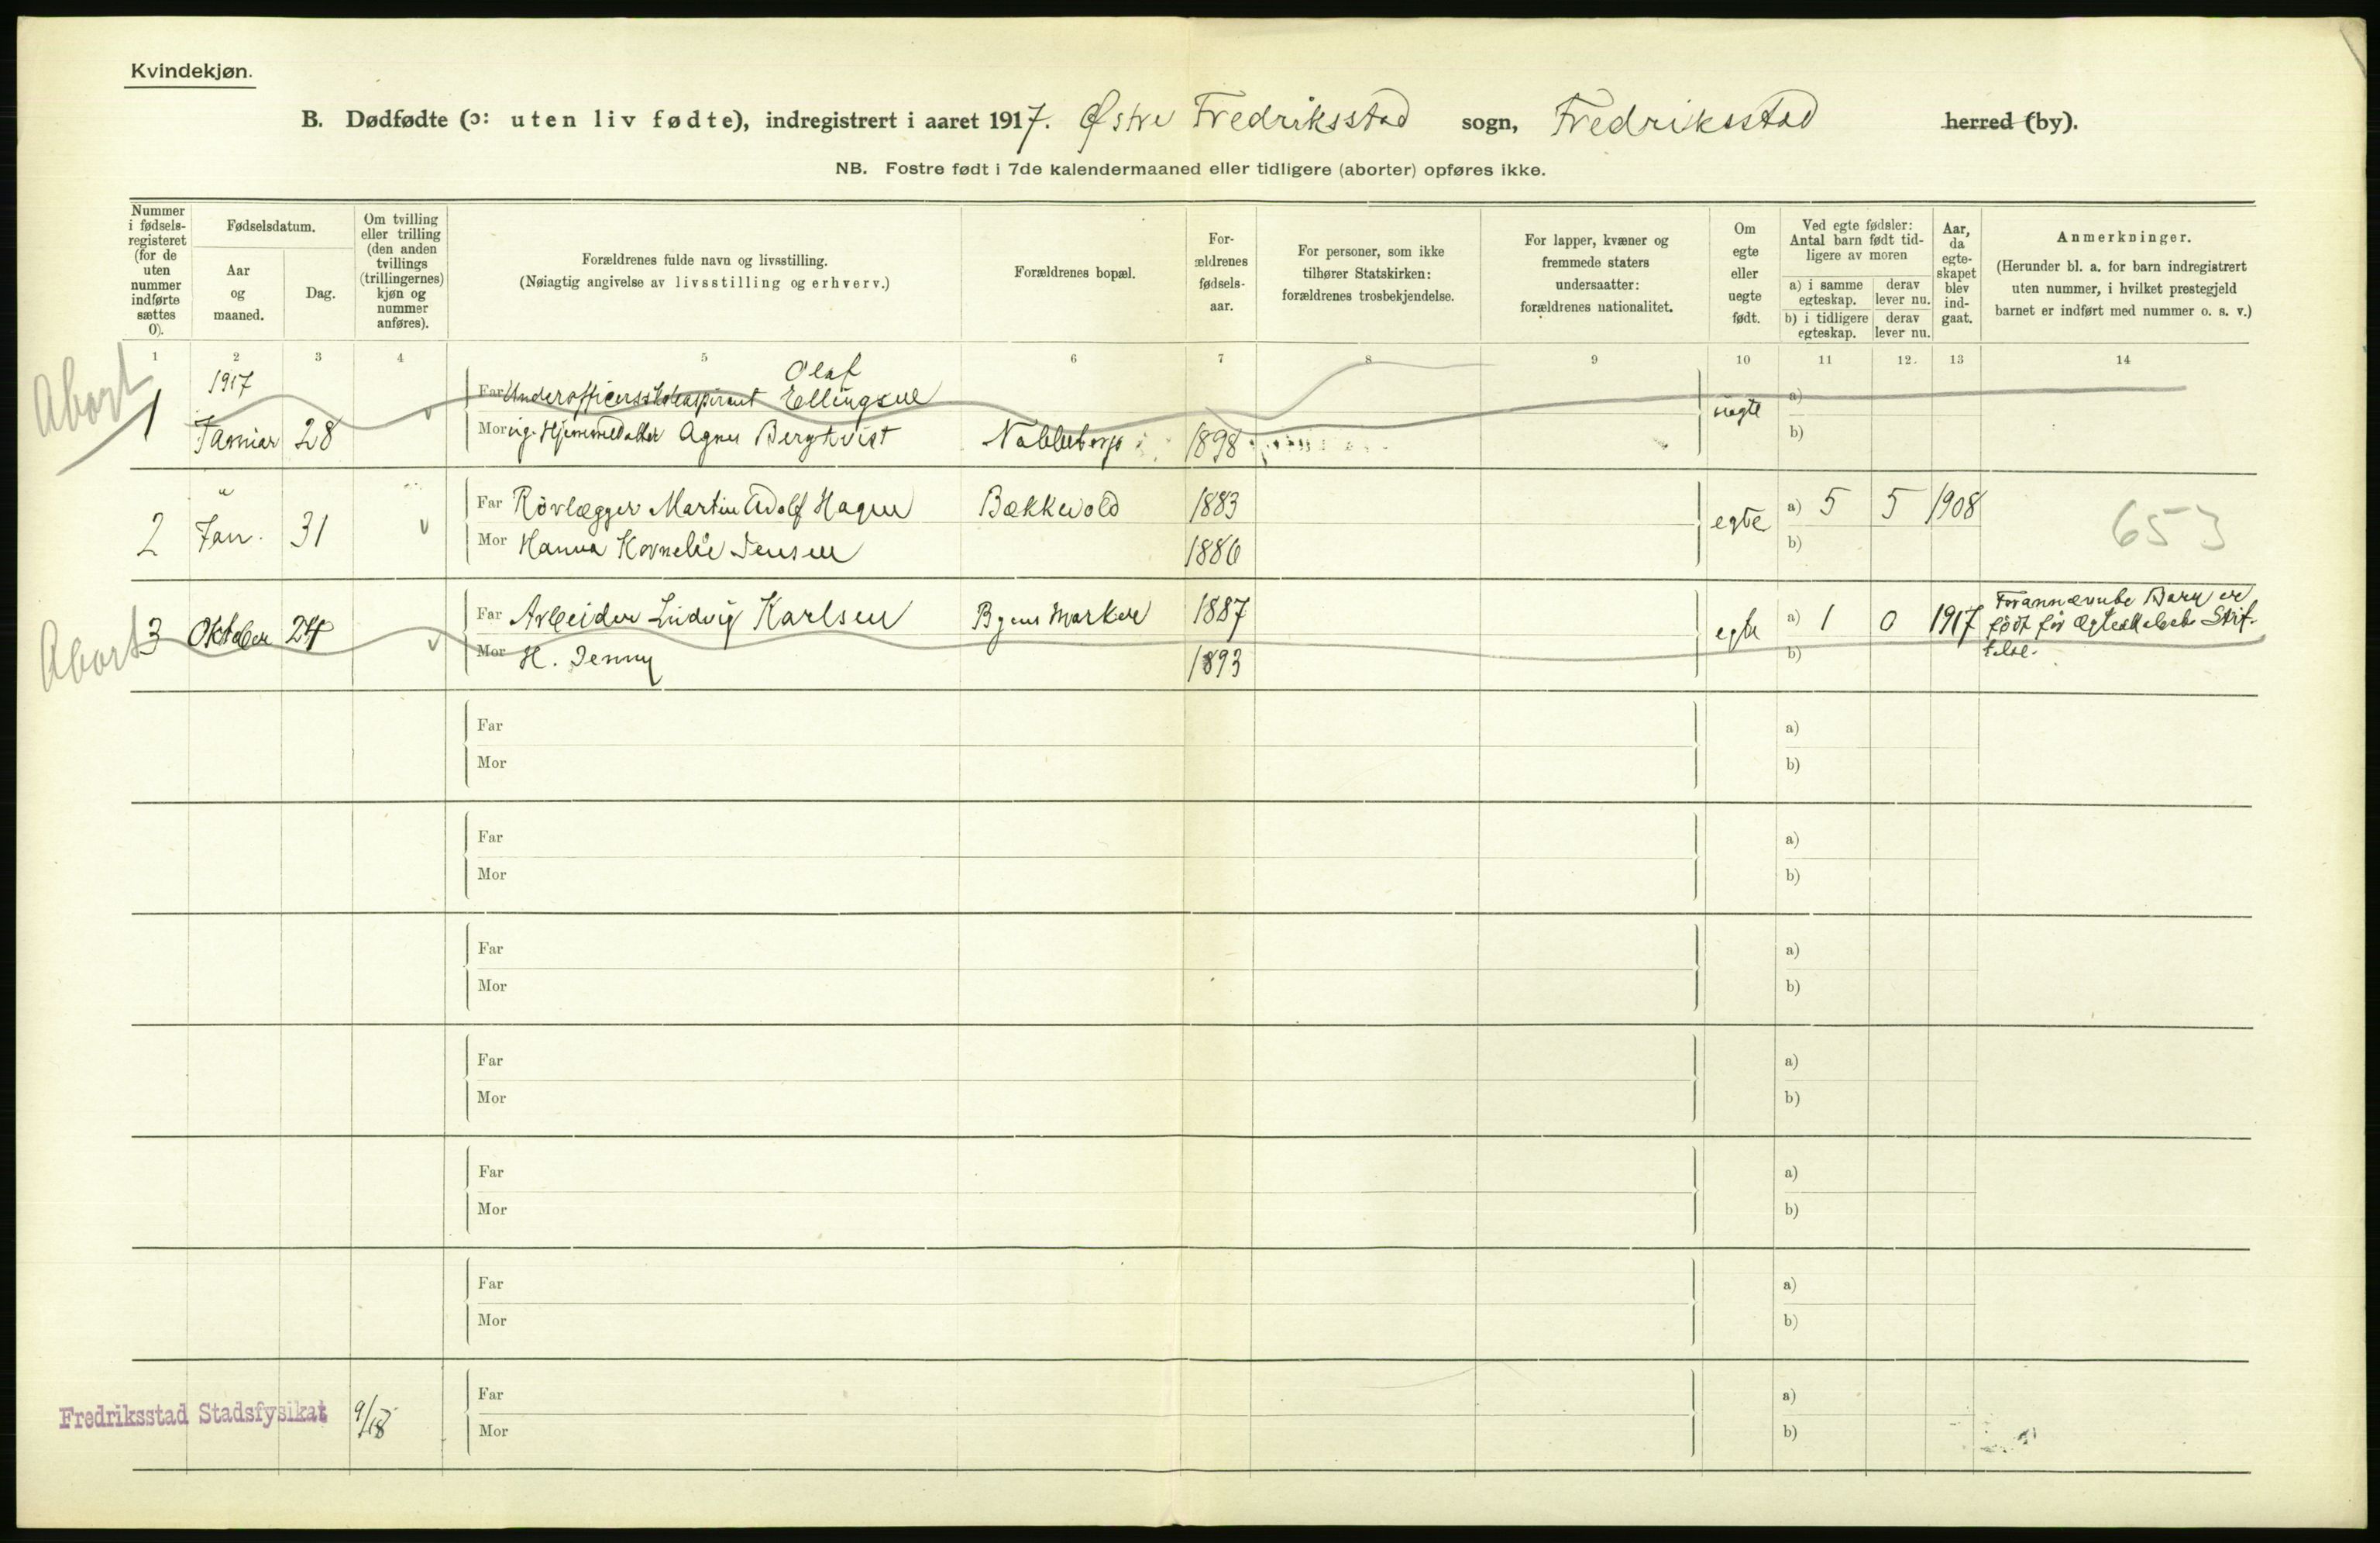 Kvindekjøn.
B. Dødfødte (ɔ: uten liv fødte), indregistrert i aaret 1917. Østre Fredriksstad sogn, Fredriksstad herred (by).
NB. Fostre født i 7de kalendermaaned eller tidligere (aborter) opføres ikke.
Nummer i fødsels-registeret (for de uten nummer indførte sættes 0).
Fødselsdatum.
Aar og maaned.
Dag.
Om tvilling eller trilling (den anden tvillings (trillingernes) kjøn og nummer anføres).
Forældrenes fulde navn og livsstilling.
(Nøiagtig angivelse av livsstilling og erhverv.)
Forældrenes bopæl.
For-ældrenes fødsels-aar.
For personer, som ikke tilhører Statskirken: forældrenes trosbekjendelse.
For lapper, kvæner og fremmede staters undersaatter: forældrenes nationalitet.
Om egte eller uegte født.
Ved egte fødsler: Antal barn født tid-ligere av moren
a) i samme egteskap.
derav lever nu.
b) i tidligere egteskap.
derav lever nu.
Aar, da egte-skapet blev ind-gaat.
Anmerkninger.
(Herunder bl. a. for barn indregistrert uten nummer, i hvilket prestegjeld barnet er indført med nummer o. s. v.)
1 2 3 4 5 6 7 8 9 10 11 12 13 14
Abort
1917
Olaf
Far Ellingsen
uegte a)
1 Januar 28 v
Mor Agnes Bergkvist 1898
b)
"
2 Jan. 31 v
Far Rörlægger Martin Adolf Hagen Bækkevold 1883
egte a) 5 5 1908
653
Mor Hanna Kornelie Jensen 1886
b)
Abort
3 Oktober 24 v
Far Arbeider Ludvig Karlsen Byens Marker 1887
egte a) 1 0 1917
Forannævnte Barn er
født før Ægteskabets Stif-
telse.
Mor H. Jenny 1893
b)
Far a)
Mor b)
Far a)
Mor b)
Far a)
Mor b)
Far a)
Mor b)
Far a)
Mor b)
Far a)
Mor b)
Far a)
Fredriksstad Stadsfysikat
Mor b)